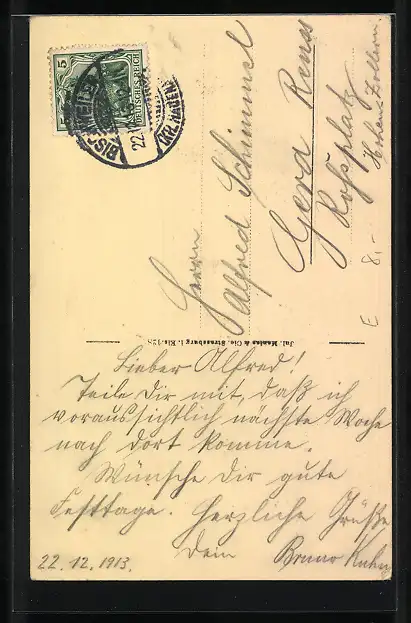 5
DEUTSCHES REICH
BISCHWEILER
22.
(KR. HAGENAU)
Herrn
Alfred Schimmel
Gera Reuss
Roßplatz
Hohenzollern
E 8,-
Jul. Manias & Cie. Strassburg i. Els.
Lieber Alfred!
Teile Dir mit, daß ich
voraussichtlich nächste Woche
nach dort komme.
Wünsche Dir gute
Festtage. Herzliche Grüße
Dein Bruno
22.12.1913.